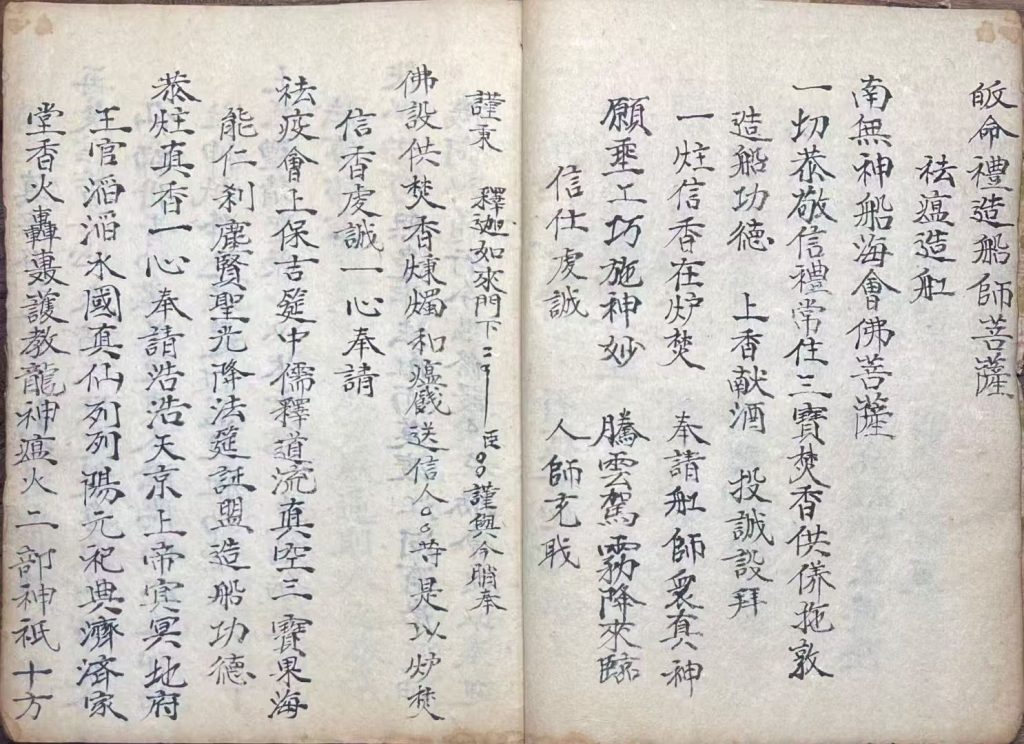 皈命禮造船師菩薩
祛瘟造舡
南無神船海會佛菩薩
一切恭敬信禮常住三寶焚香供養拖敦
造船功德 上香献酒 投誠設拜
一炷信香在炉焚 奉請舡師衆真神
願垂工巧施神妙 騰雲駕霧降來臨
信仕虔誠 人師充戝
謹秉 釋迦如來門下 臣 謹與今醮奉
佛設供焚香煉燭和瘟戲送信人 等是以炉焚
信香虔誠一心奉請
祛疫會上保吉筵中儒釋道流真空三寶果海
能仁刹塵賢聖光降法筵証盟造船功德
恭炷真香一心奉請浩浩天京上帝冥冥地府
王官滔滔水國真仙列列陽元祀典濟濟家
堂香火轟轟護教龍神瘟火二部神祇十方